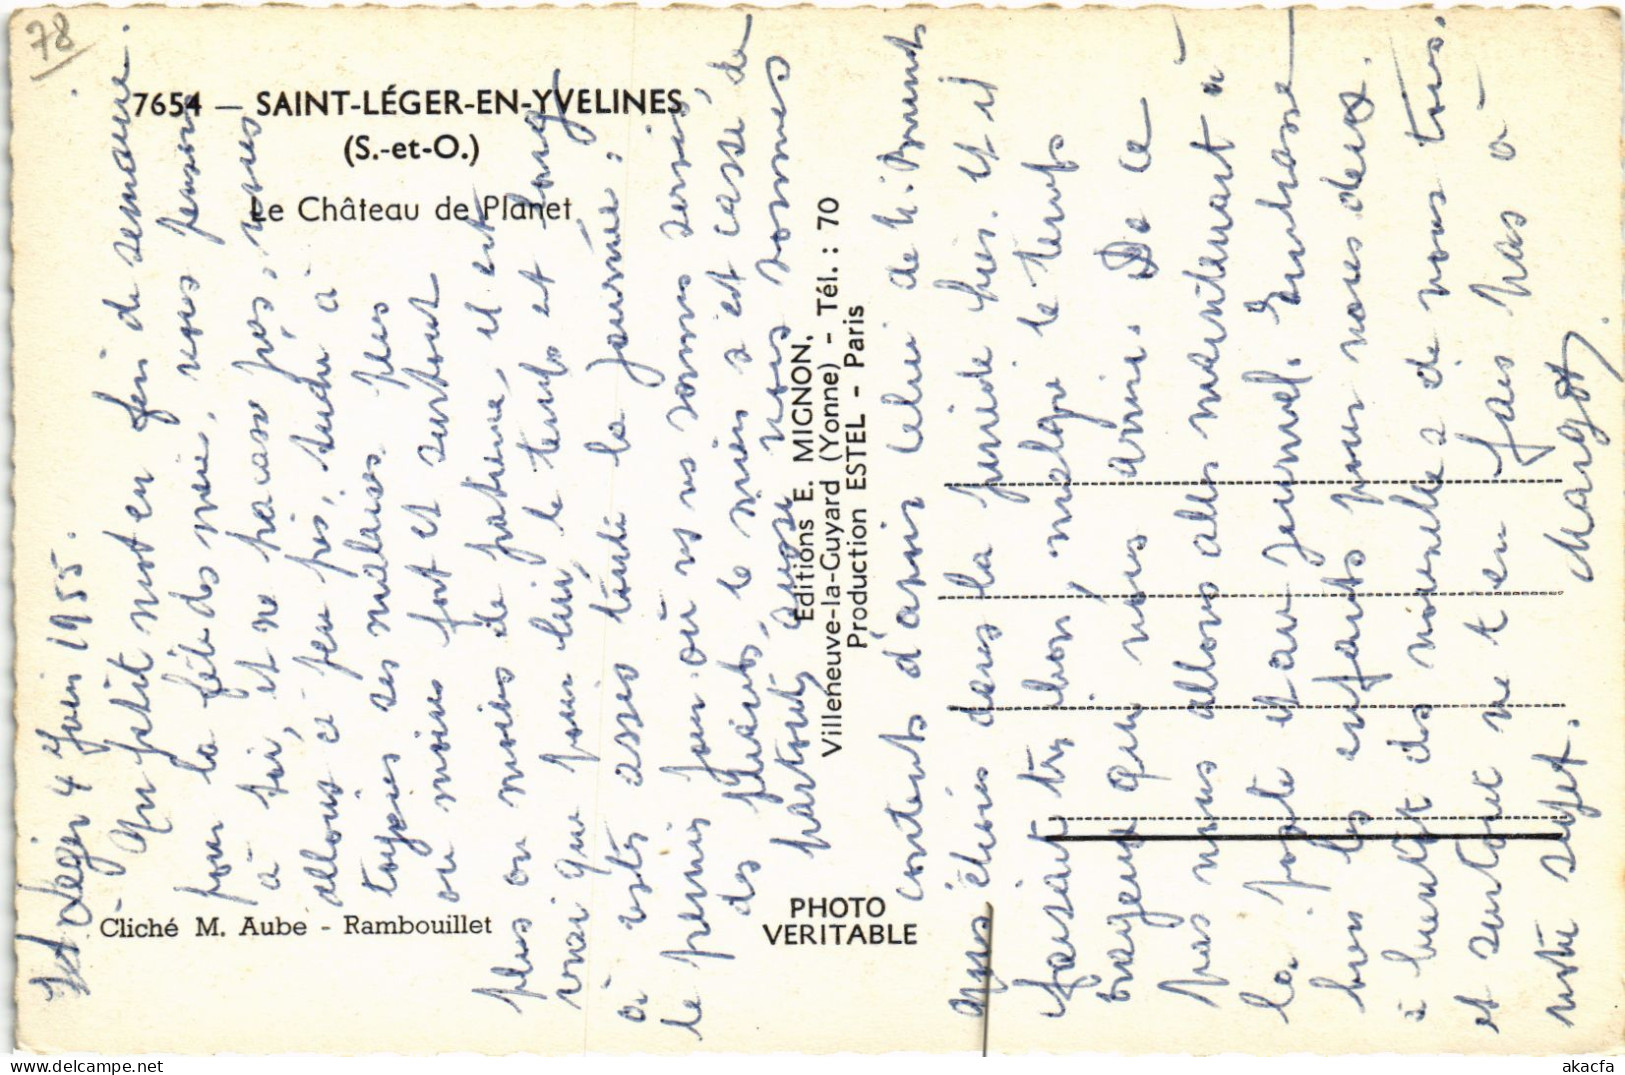 78
7654 — SAINT-LÉGER-EN-YVELINES
(S.-et-O.)
Le Château de Planet
Cliché M. Aube - Rambouillet
Editions E. MIGNON,
Villeneuve-la-Guyard (Yonne) - Tél. : 70
Production ESTEL - Paris
PHOTO
VERITABLE
St Léger 4 Juin 1955.
Un petit mot en fin de semaine.
pour la fête des mères, nous pensons
à toi, et ne pouvons pas, nous
allons à peu près, tendu à
toujours ses malaises plus
ou moins fort et surtout
plus ou moins de patience, il est
vrai que pour lui, le temps est long
à rester assis toute la journée,
le premier jour où nous sommes sortis,
des fluarts, le mien s'est cassé de
partout, aussi nous sommes
contents d'avoir celui de M. Bruns
Nous étions dans la pinède hier. et il
faisait très bon, malgré le temps
orageux qui nous arrive. De ce
pas nous allons aller maintenant à
la poste et au journal. Embrasse
bien les enfants pour nous deux.
à bientôt des nouvelles de vous tous,
et surtout ne t'en fais pas à
notre sujet.
Margot.
akacfa